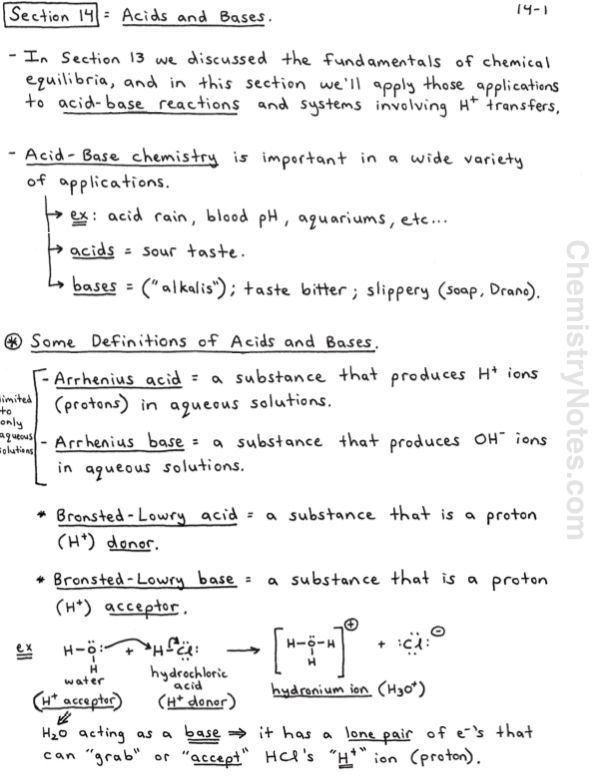 Section 14 = Acids and Bases.
14-1
- In Section 13 we discussed the fundamentals of chemical
equilibria, and in this section we'll apply those applications
to acid-base reactions and systems involving H⁺ transfers,
- Acid-Base chemistry is important in a wide variety
of applications.
↳ ex: acid rain, blood pH, aquariums, etc...
↳ acids = sour taste.
↳ bases = ("alkalis"); taste bitter; slippery (soap, Drano).
⊛ Some Definitions of Acids and Bases.
- Arrhenius acid = a substance that produces H⁺ ions
(protons) in aqueous solutions.
- Arrhenius base = a substance that produces OH⁻ ions
in aqueous solutions.
limited
to
only
aqueous
solutions
* Bronsted-Lowry acid = a substance that is a proton
(H⁺) donor.
* Bronsted-Lowry base = a substance that is a proton
(H⁺) acceptor.
ex H-Ö: + H-Cl: → [H-Ö-H]⊕ + :Cl:⊖
H H
water hydrochloric hydronium ion (H₃O⁺)
acid
(H⁺ acceptor) (H⁺ donor)
H₂O acting as a base ⇒ it has a lone pair of e⁻'s that
can "grab" or "accept" HCl's "H⁺" ion (proton).
ChemistryNotes.com